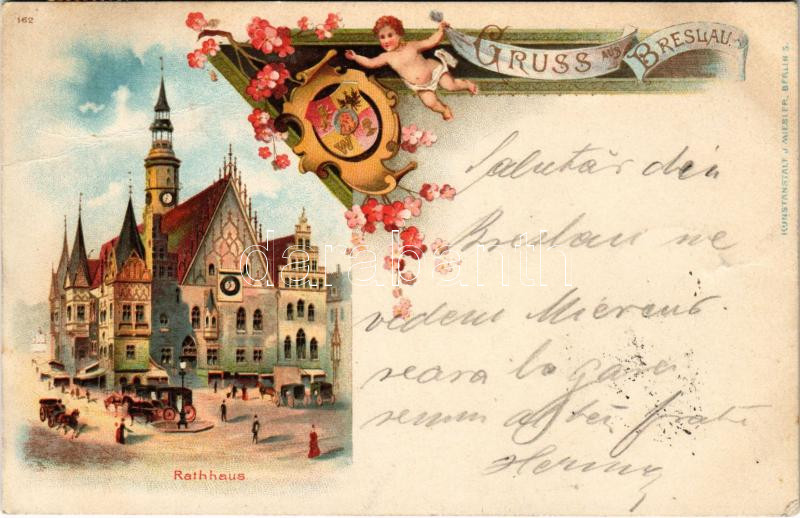 162
GRUSS AUS BRESLAU.
KUNSTANSTALT J. MIESLER, BERLIN S.
W
Salutări din
Breslau ne
vedem Miercuri
seara la gară
semn al tău frate
darabanth
Rathhaus